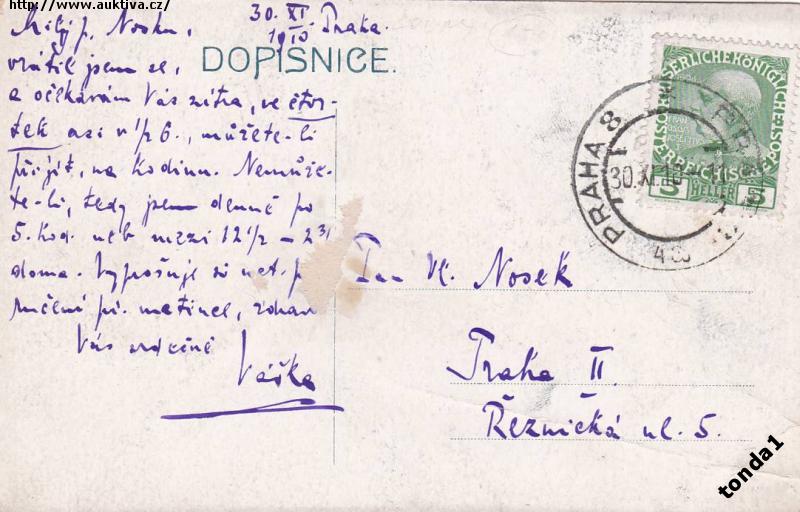 http://www.auktiva.cz/
30. XI. Praha.
1910
Milý p. Nosku,
DOPISNICE.
vrátil jsem se,
a očekávám Vás zítra, ve čtvr-
tek asi v 1/2 6., můžete-li
přijít, na hodinu. Nemůže-
te-li, tedy jsem denně po
5. hod. neb mezi 12 1/2 – 2
doma.
zdraví
Vás srdečně
Vaška
Pan Vl. Nosek
Praha II.
Řeznická ul. 5.
KAISERLICHE KÖNIGLICHE
ÖSTERREICHISCHE POST
5 HELLER 5
PRAHA 8
30.XI.10
tonda1